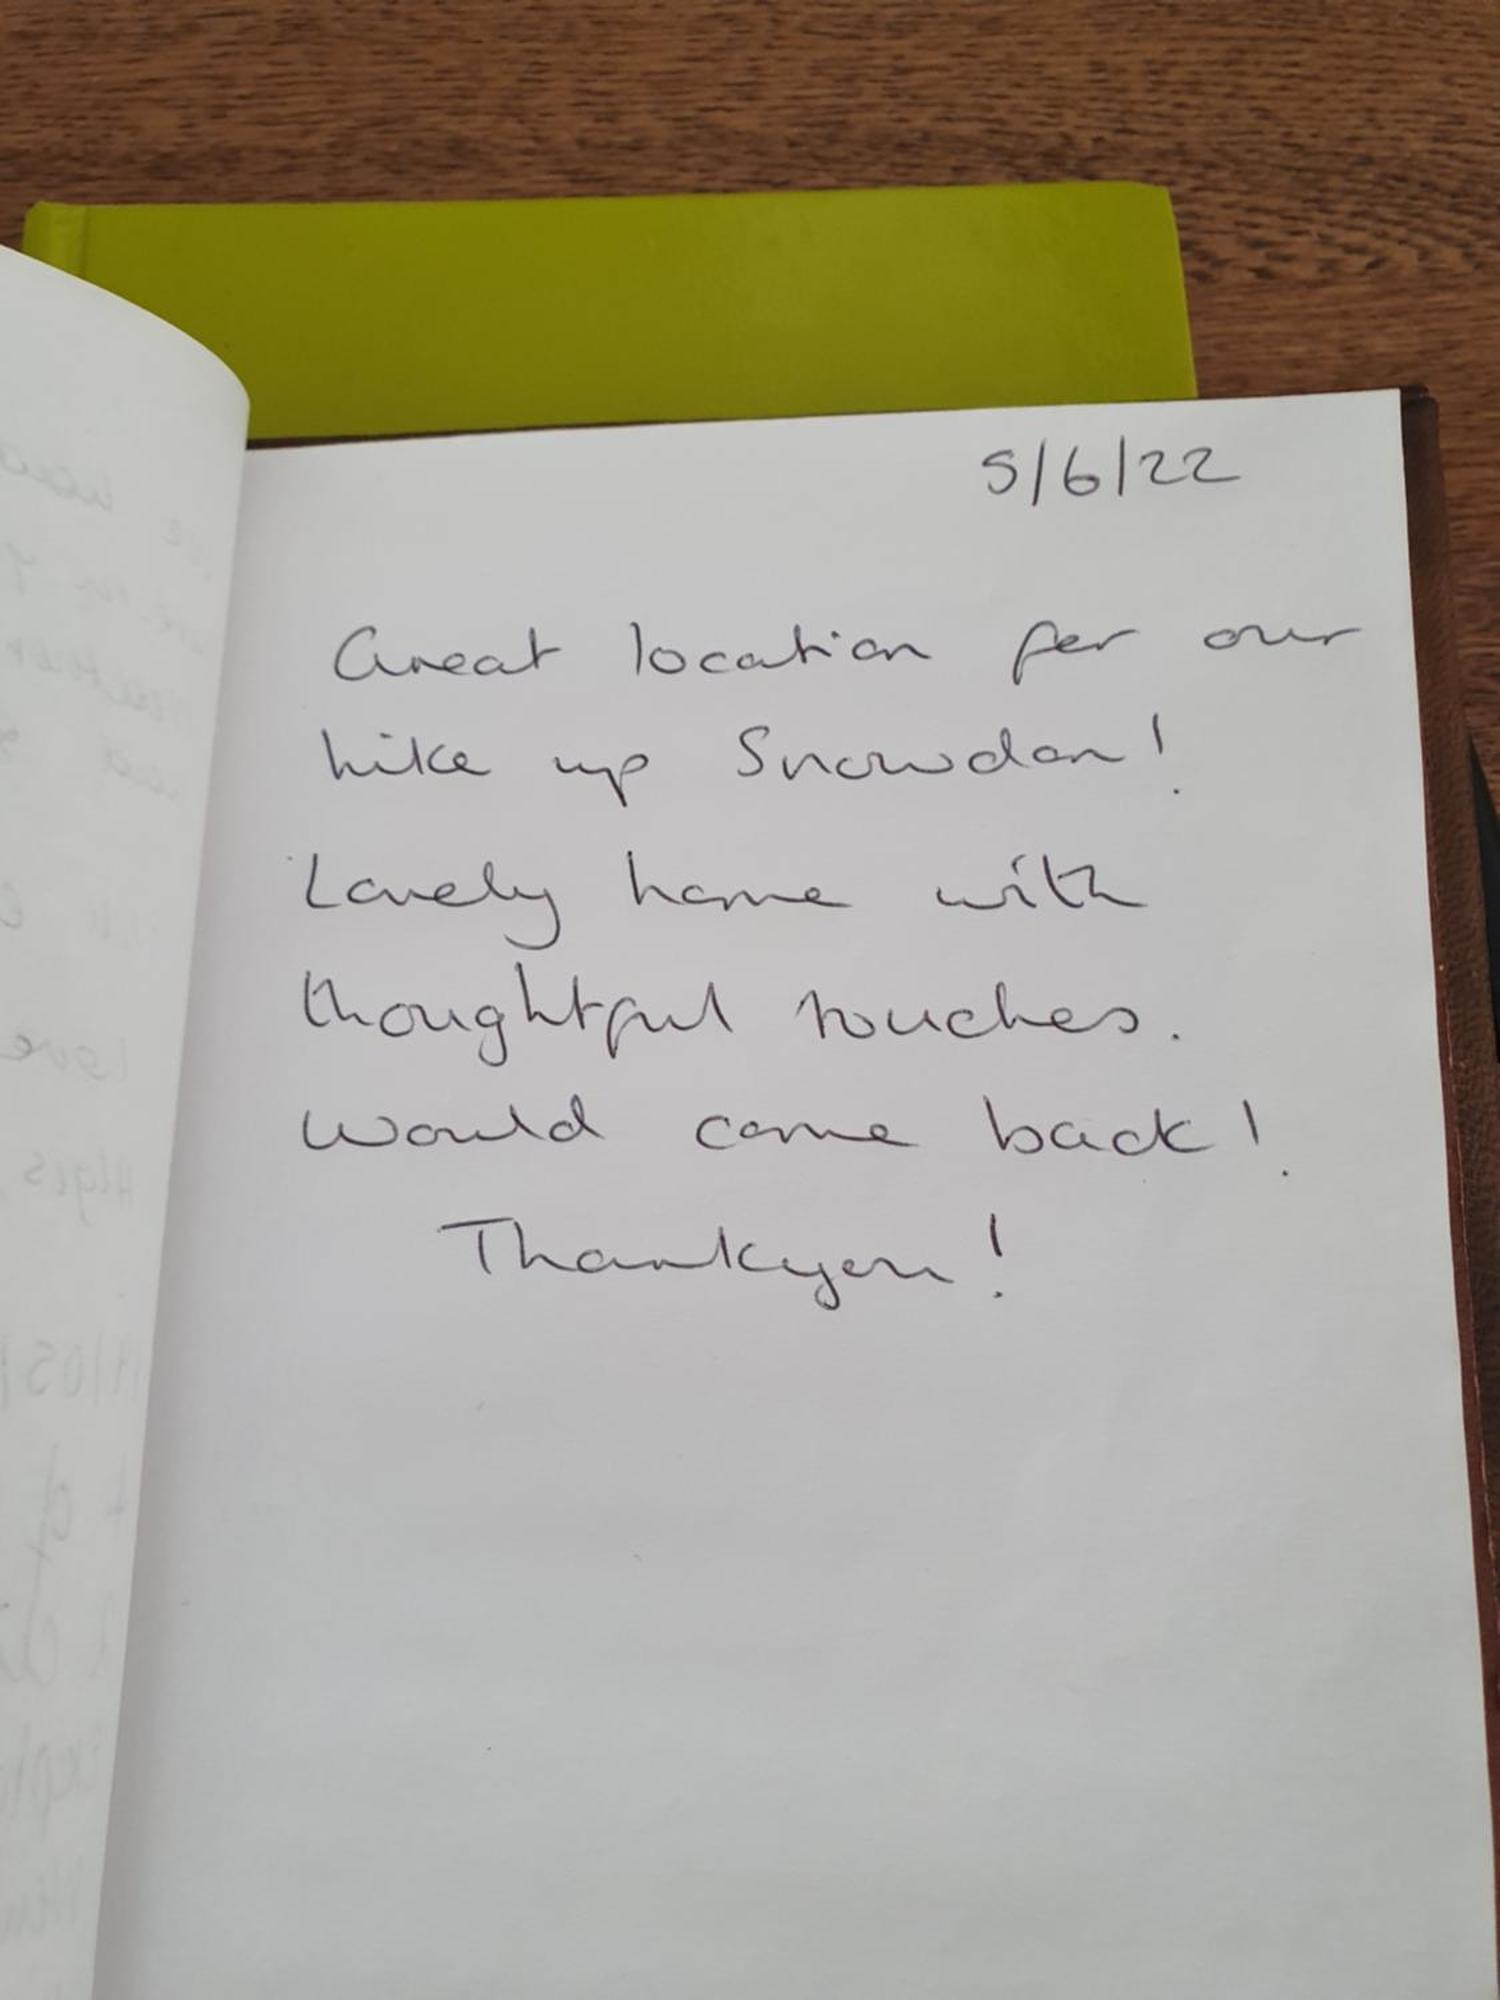 5/6/22
Great location for our
hike up Snowdon!
Lovely home with
thoughtful touches.
Would come back!
Thankyou!